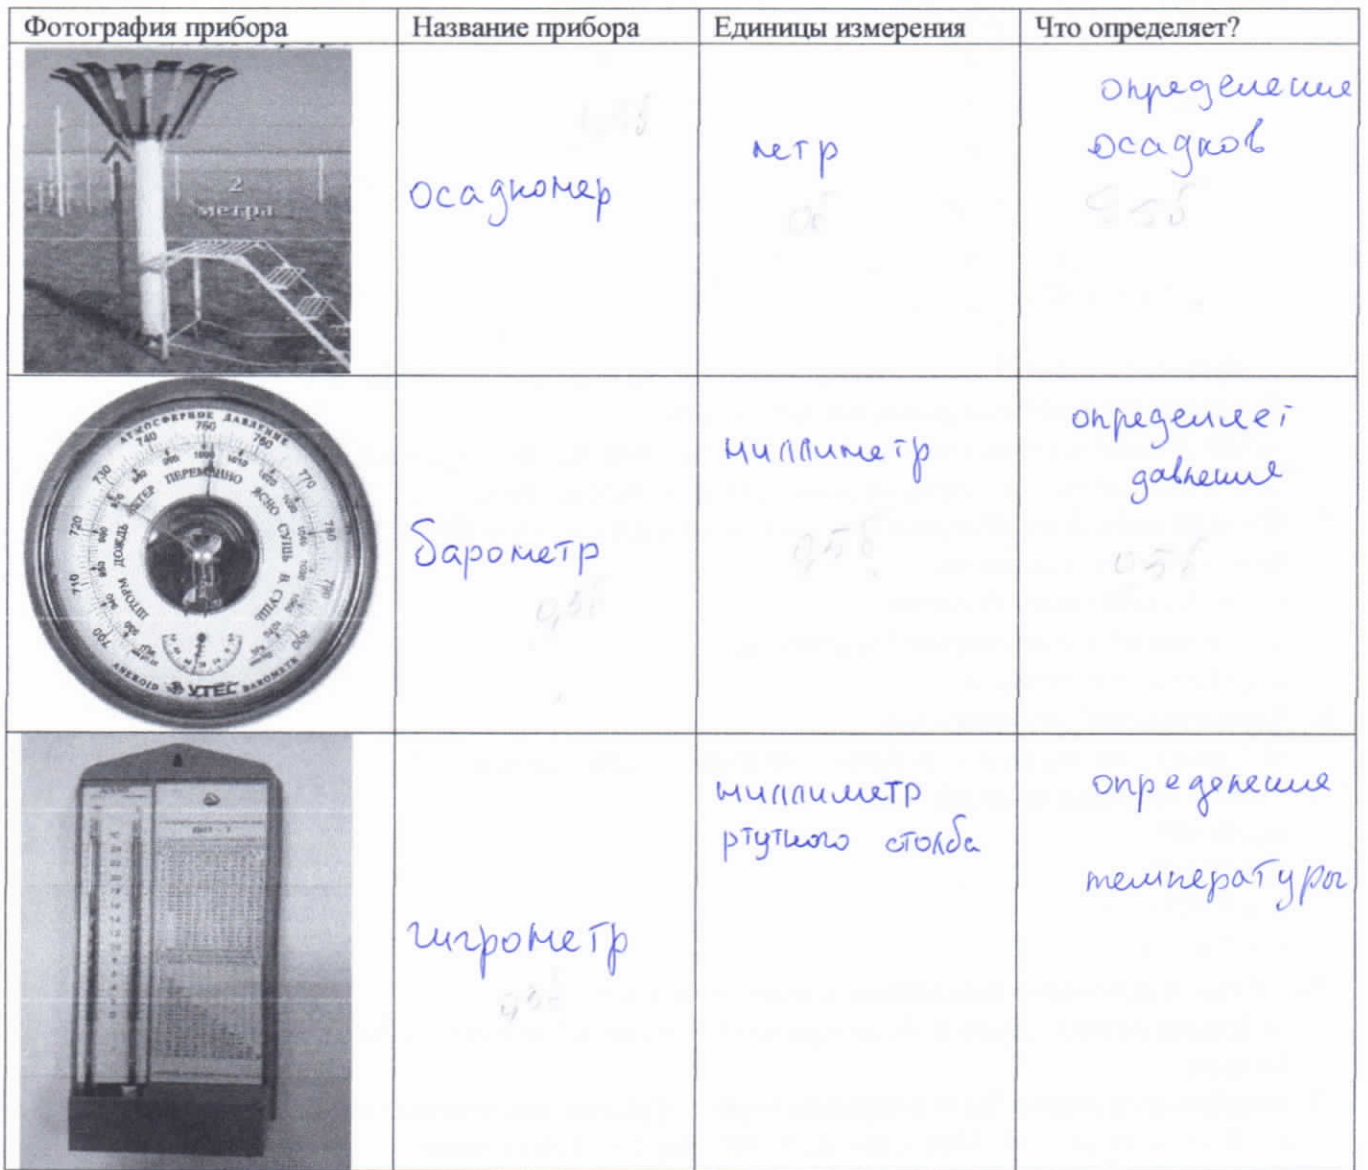 Фотография прибора
Название прибора
Единицы измерения
Что определяет?
2
метра
осадкомер
метр
определение
осадков
АТМОСФЕРНОЕ ДАВЛЕНИЕ
700 710 720 730 740 750 760 770 780 790 800
ШТОРМ ДОЖДЬ ВЕТЕР ПЕРЕМЕННО ЯСНО СУШЬ В. СУШЬ
ANEROID УТЕС BAROMETR
барометр
0,5б
миллиметр
0,5б
определяет
давления
0,5б
гигрометр
0,5б
миллиметр
ртутного столба
определения
температуры